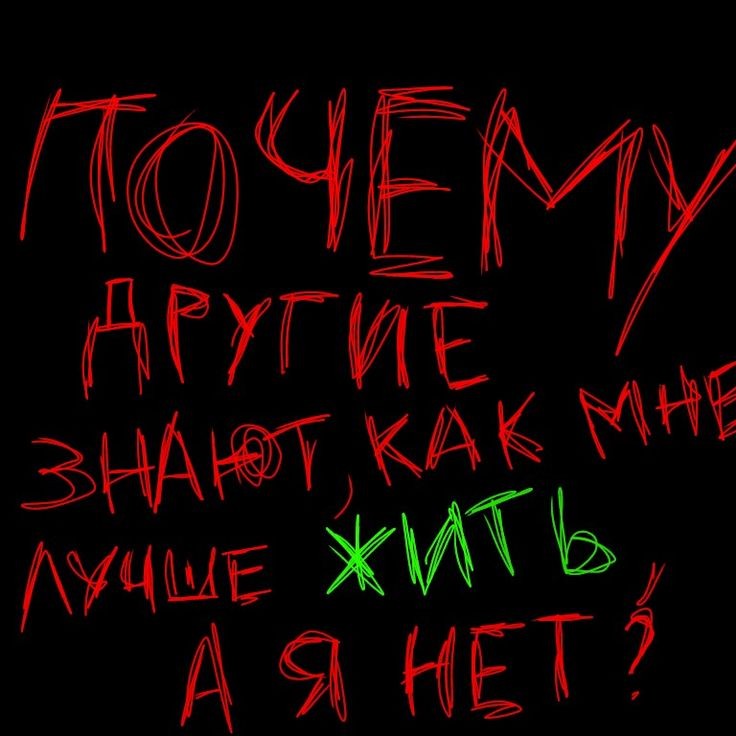 ПОЧЕМУ
ДРУГИЕ
ЗНАЮТ, КАК МНЕ
ЛУЧШЕ ЖИТЬ
А Я НЕТ?